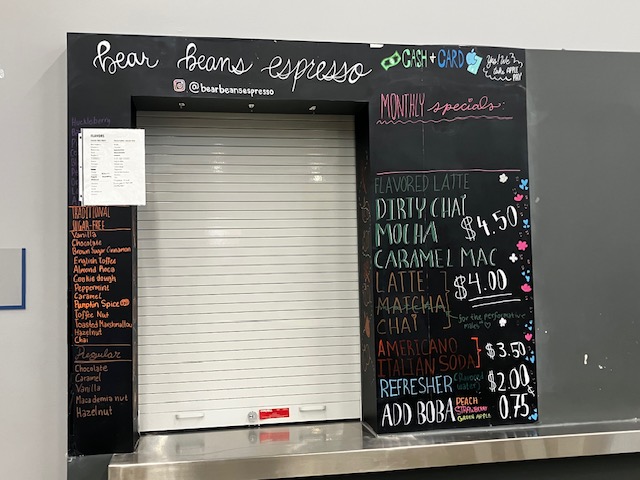 Bear Beans espresso
@bearbeansespresso
CASH + CARD
Yes! we take APPLE PAY
MONTHLY specials:
FLAVORED LATTE
DIRTY CHAI
MOCHA
$4.50
CARAMEL MAC
LATTE
MATCHA
CHAI
$4.00
for the performative males
AMERICANO
ITALIAN SODA
$3.50
REFRESHER (flavored water) $2.00
ADD BOBA PEACH STRAWBERRY GREEN APPLE 0.75
Huckleberry
FLAVORS
TRADITIONAL
SUGAR-FREE
Vanilla
Chocolate
Brown Sugar Cinnamon
English Toffee
Almond Roca
Cookie dough
Peppermint
Caramel
Pumpkin Spice
Toffee Nut
Toasted Marshmallow
Hazelnut
Chai
Regular
Chocolate
Caramel
Vanilla
Macademia nut
Hazelnut